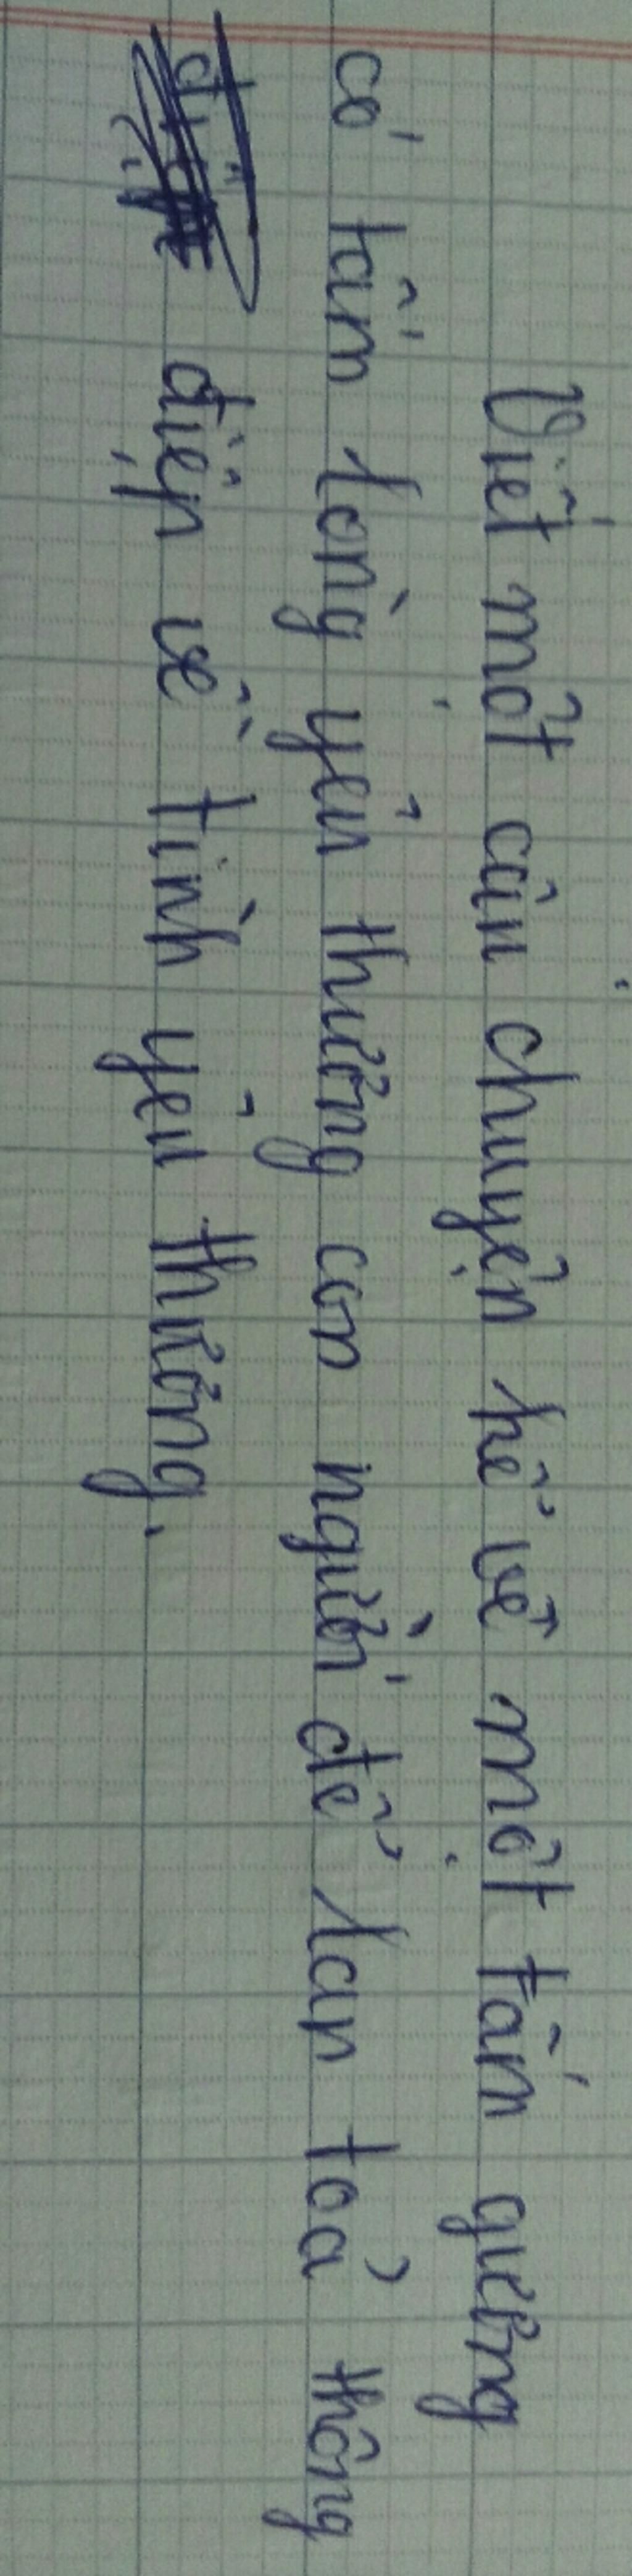 Viết một câu chuyện kể về một tấm gương
có tấm lòng yêu thương con người để lan toả thông
điệp về tình yêu thương.